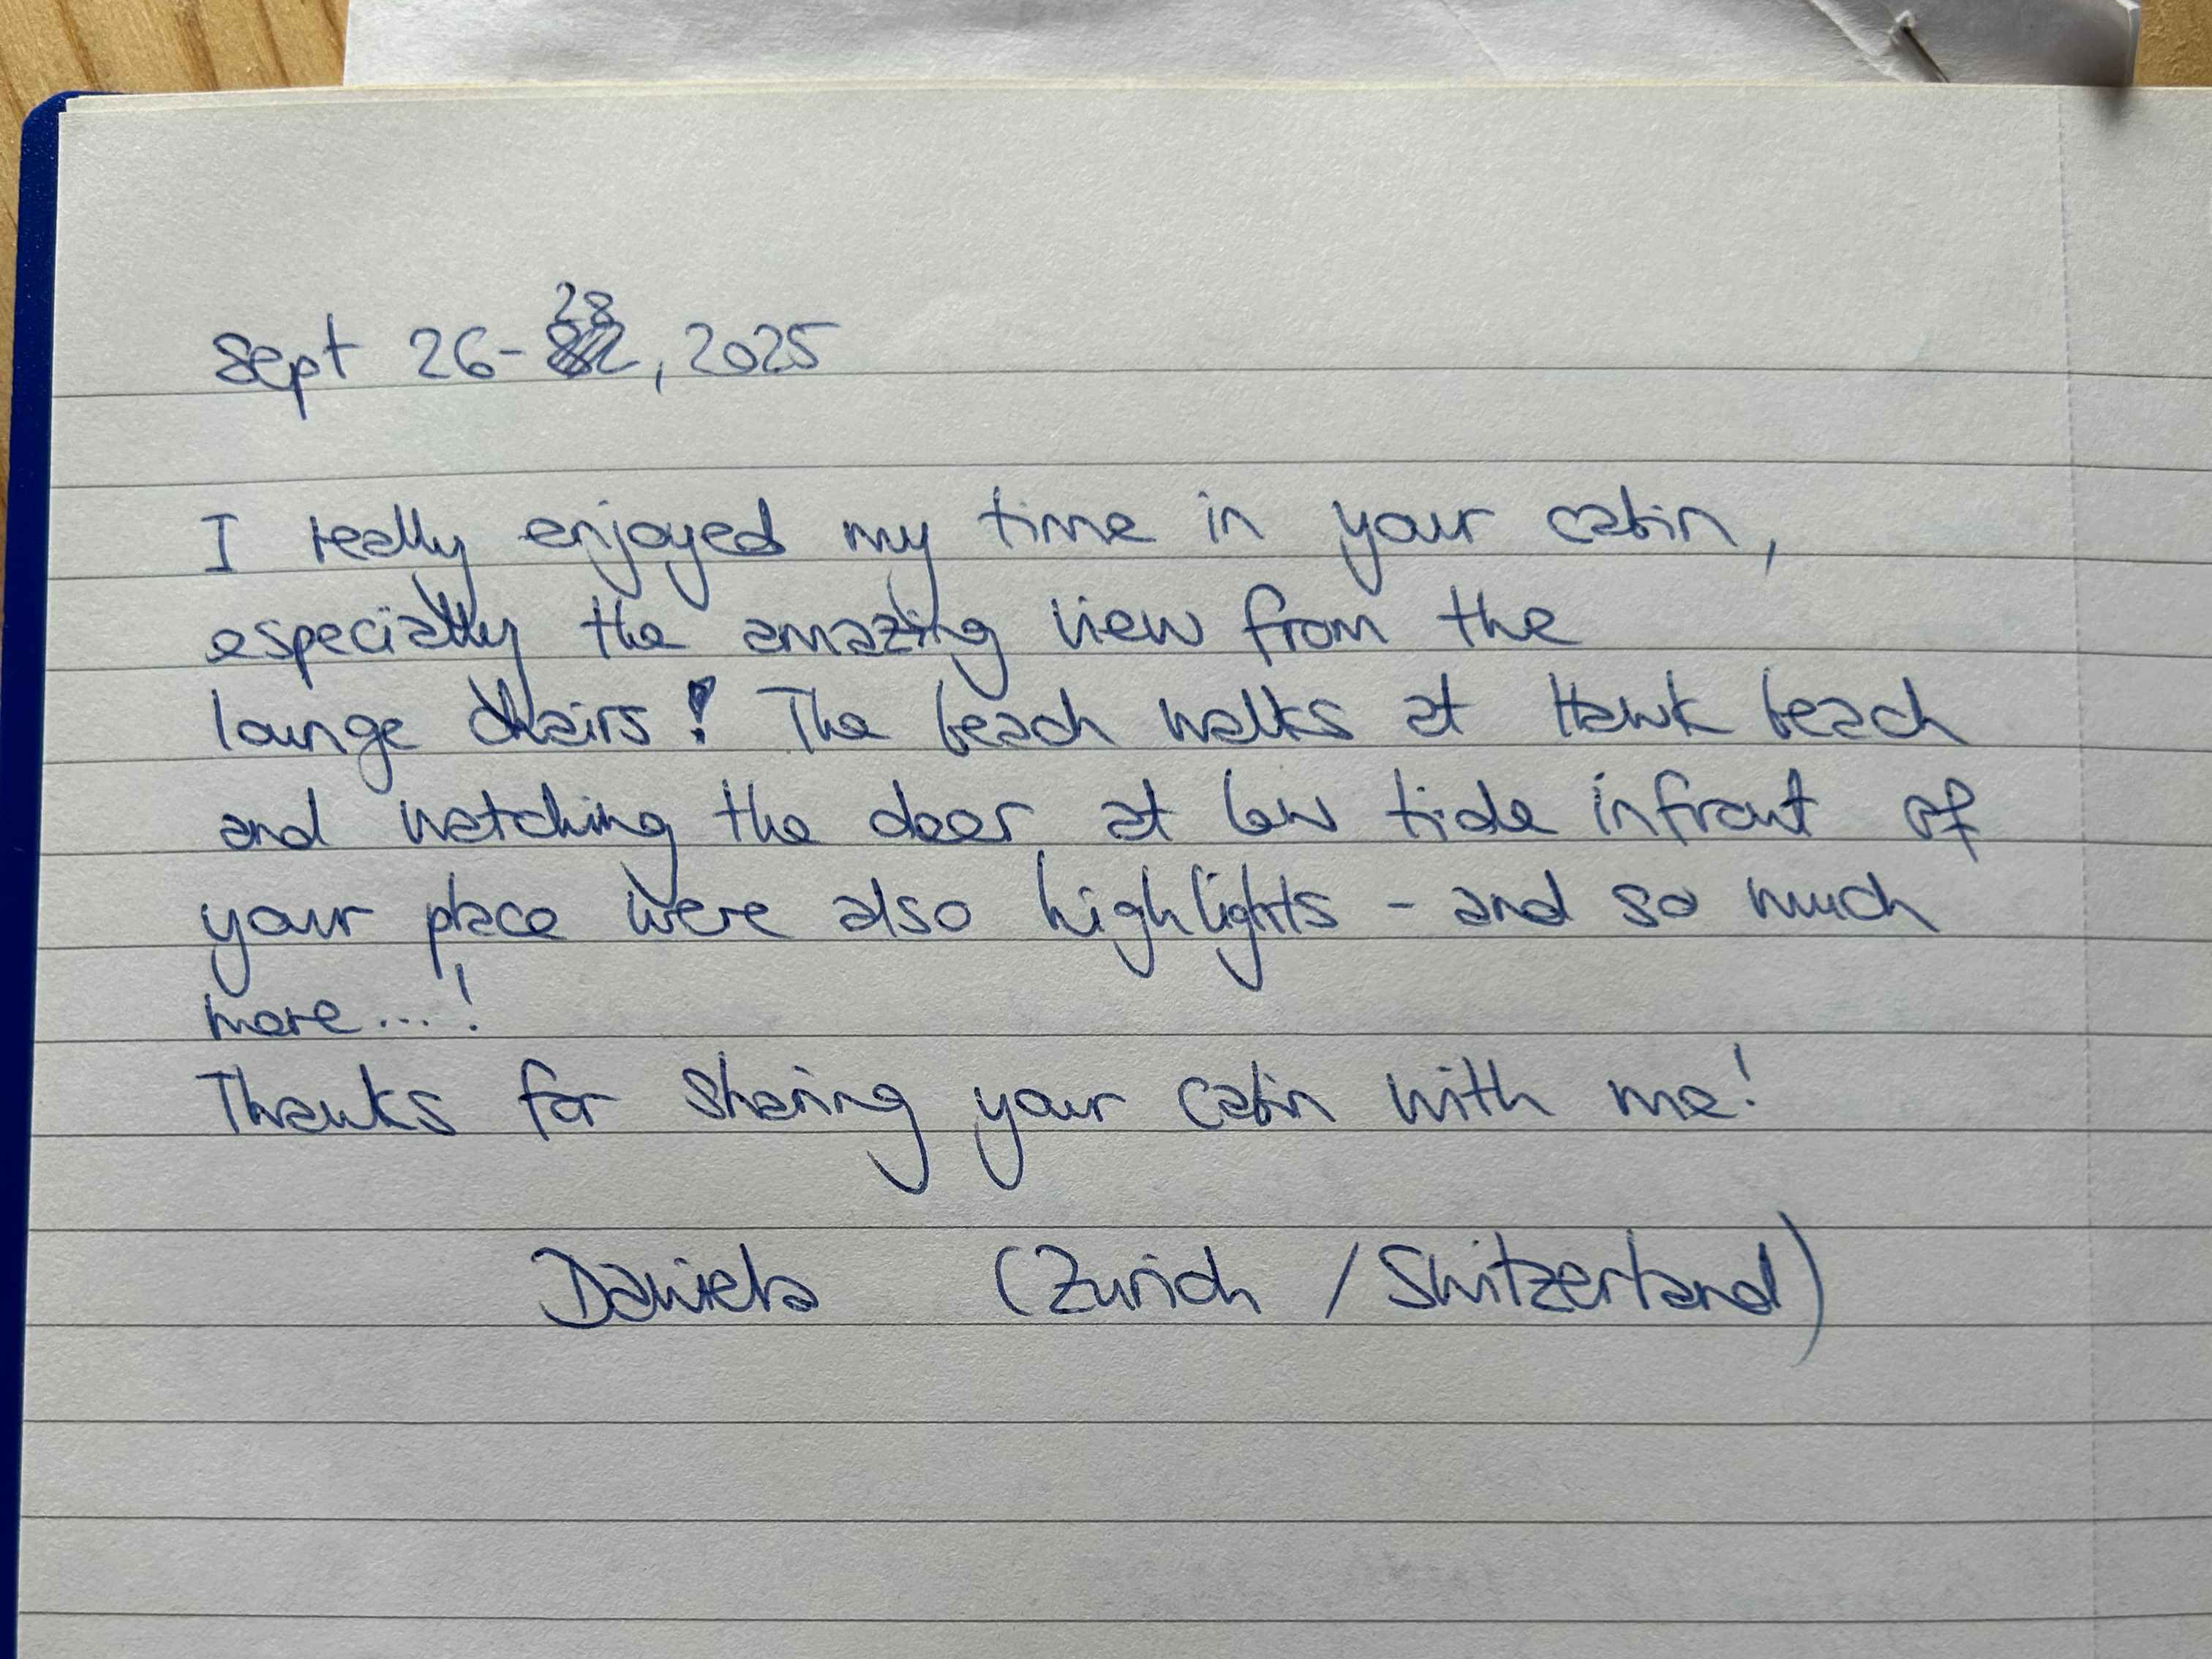 Sept 26-28, 2025
I really enjoyed my time in your cabin,
especially the amazing view from the
lounge chairs! The beach walks at Hawk beach
and watching the deer at low tide infront of
your place were also highlights - and so much
more...!
Thanks for sharing your cabin with me!
Daniela (Zurich / Switzerland)